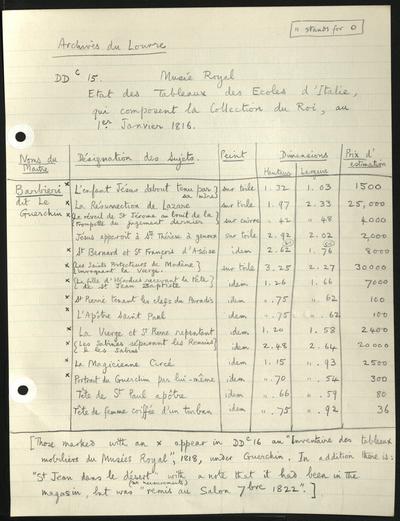 " stands for 0
Archives du Louvre
DD c 15. Musée Royal
Etat des Tableaux des Ecoles d'Italie,
qui composent la Collection du Roi, au
1er Janvier 1816.
Noms du Maître Désignation des Sujets. Peint Dimensions Prix d'estimation
Hauteur Largeur
Barbieri dit Le Guerchin
x L'enfant Jésus debout tenu par sa mère sur toile 1.32 1.03 1500
x La Résurrection de Lazare sur toile 1.97 2.33 25,000
x Le réveil de St Jérome au bout de la trompette du jugement dernier sur cuivre " 42 " 48 4000
Jésus apparoit à Ste Thérèse à genoux sur toile 2.92 2.02 2,000
x St Bernard et St François d'Assise idem 2.62 1.76 8000
x Les Saints Protecteurs de Modène invoquant la Vierge. sur toile 3.25 2.27 30000
x La fille d'Hérodias recevant la tête de St Jean Baptiste idem 1.26 1.66 7000
x St Pierre tenant les clefs du Paradis idem ".75 " 62 100
x L'Apôtre Saint Paul idem ".75 ". 62 100
x La Vierge et St Pierre repentant idem 1.20 1.58 2400
x Les Sabines séparant les Romains & les Sabins idem 2.48 2.64 20000
x La Magicienne Circé idem 1.15 ".93 2500
x Portrait du Guerchin par lui-même idem ".70 " 54 300
Tête de St Paul apôtre idem ".66 ". 59 80
Tête de femme coiffée d'un turban idem ".75 ". 92 36
[Those marked with an x appear in DD c 16 an "Inventaire des tableaux
mobiliers du Musées Royal", 1818, under Guerchin. In addition there is:
"St Jean dans le désert" with a note that it had been in the
magasin, but was "remis au Salon 7bre 1822". ]